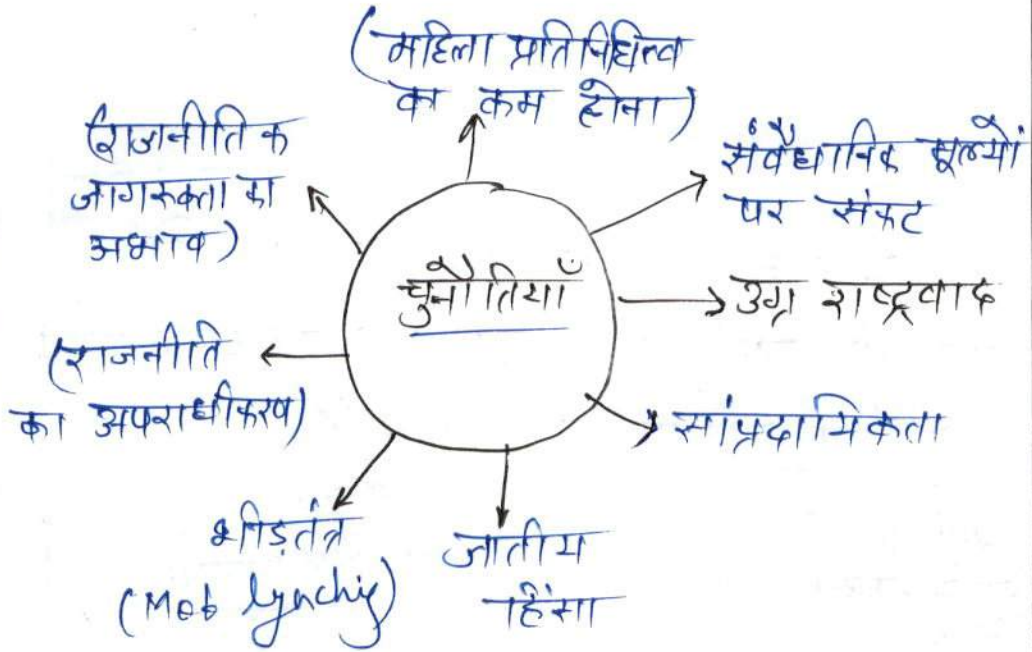 (महिला प्रतिनिधित्व
का कम होना)
संवैधानिक मूल्यों
पर संकट
उग्र राष्ट्रवाद
सांप्रदायिकता
जातीय
हिंसा
भीड़तंत्र
(Mob lynching)
(राजनीति
का अपराधीकरण)
(राजनीतिक
जागरूकता का
अभाव)
चुनौतियाँ